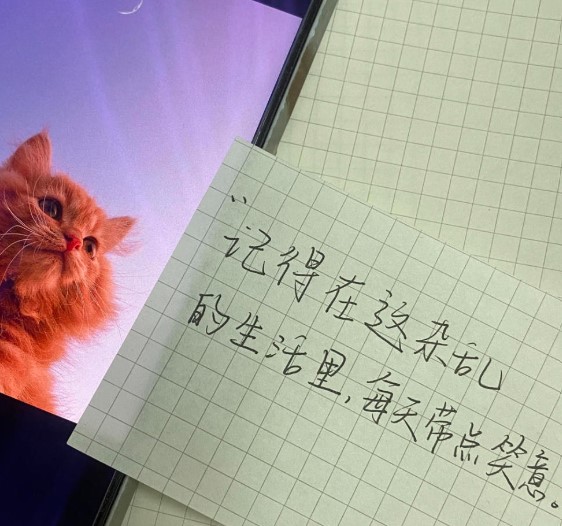 “记得在这杂乱
的生活里，每天带点笑意。